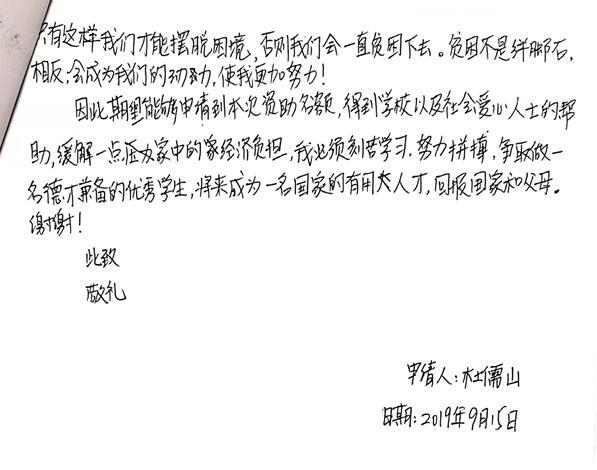 只有这样我们才能摆脱困境，否则我们会一直贫困下去。贫困不是绊脚石，
相反，会成为我们的动力，使我更加努力！
因此期望能够申请到本次资助名额，得到学校以及社会爱心人士的帮
助，缓解一点家中的家经济负担，我必须刻苦学习，努力拼搏，争取做一
名德才兼备的优秀学生，将来成为一名国家的有用人才，回报国家和父母。
谢谢！
此致
敬礼
申请人：杜儒山
日期：2019年9月15日